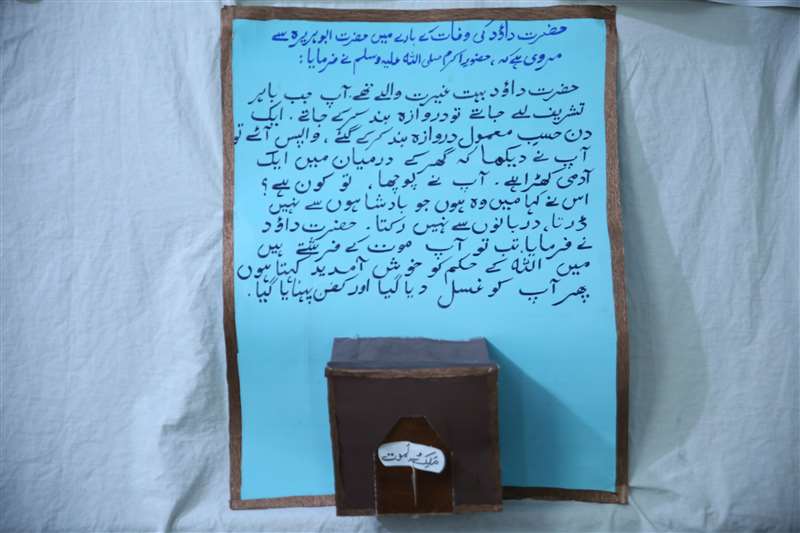 حضرت داؤد کی وفات کے بارے میں حضرت ابوہریرہ سے
مروی ہے کہ، حضور اکرم صلی اللہ علیہ وسلم نے فرمایا:
حضرت داؤد بہت غیرت والے تھے آپ جب باہر
تشریف لے جاتے تو دروازہ بند کرکے جاتے۔ ایک
دن حسب معمول دروازہ بند کرکے گئے، واپس آئے تو
آپ نے دیکھا کہ گھر کے درمیان میں ایک
آدمی کھڑا ہے۔ آپ نے پوچھا، تو کون ہے؟
اس نے کہا میں وہ ہوں جو بادشاہوں سے نہیں
ڈرتا، دربانوں سے نہیں رکتا۔ حضرت داؤد
نے فرمایا تب تو آپ موت کے فرشتے ہیں
میں اللہ کے حکم کو خوش آمدید کہتا ہوں
پھر آپ کو غسل دیا گیا اور کفن پہنایا گیا۔
ملک الموت